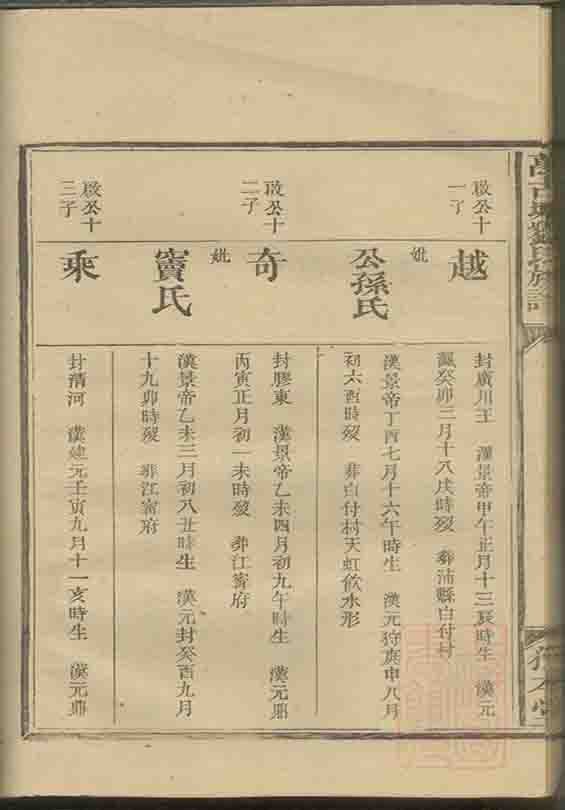 啟公十
一子
越
封廣川王 漢景帝甲午正月十三辰時生 漢元
癸卯三月十八戌時歿 葬沛縣白付村
妣
公孫氏
漢景帝丁酉七月十六午時生 漢元狩庚申八月
初六酉時歿 葬白付村天虹飲水形
啟公十
二子
奇
封膠東 漢景帝乙未四月初九午時生 漢元鼎
丙寅正月初一未時歿 葬江寧府
妣
竇氏
漢景帝乙未三月初八丑時生 漢元封癸酉九月
十九卯時歿 葬江寧府
啟公十
三子
乘
封清河 漢建元壬寅九月十一亥時生 漢元鼎